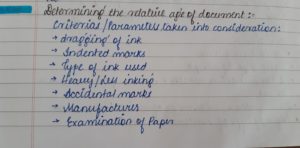 Determining the relative age of document :-
Criterias / Parameters taken into consideration:
→ dragging of ink
→ Indented marks
→ Type of ink used
→ Heavy/Less inking
→ Accidental marks
→ Manufactures
→ Examination of Paper